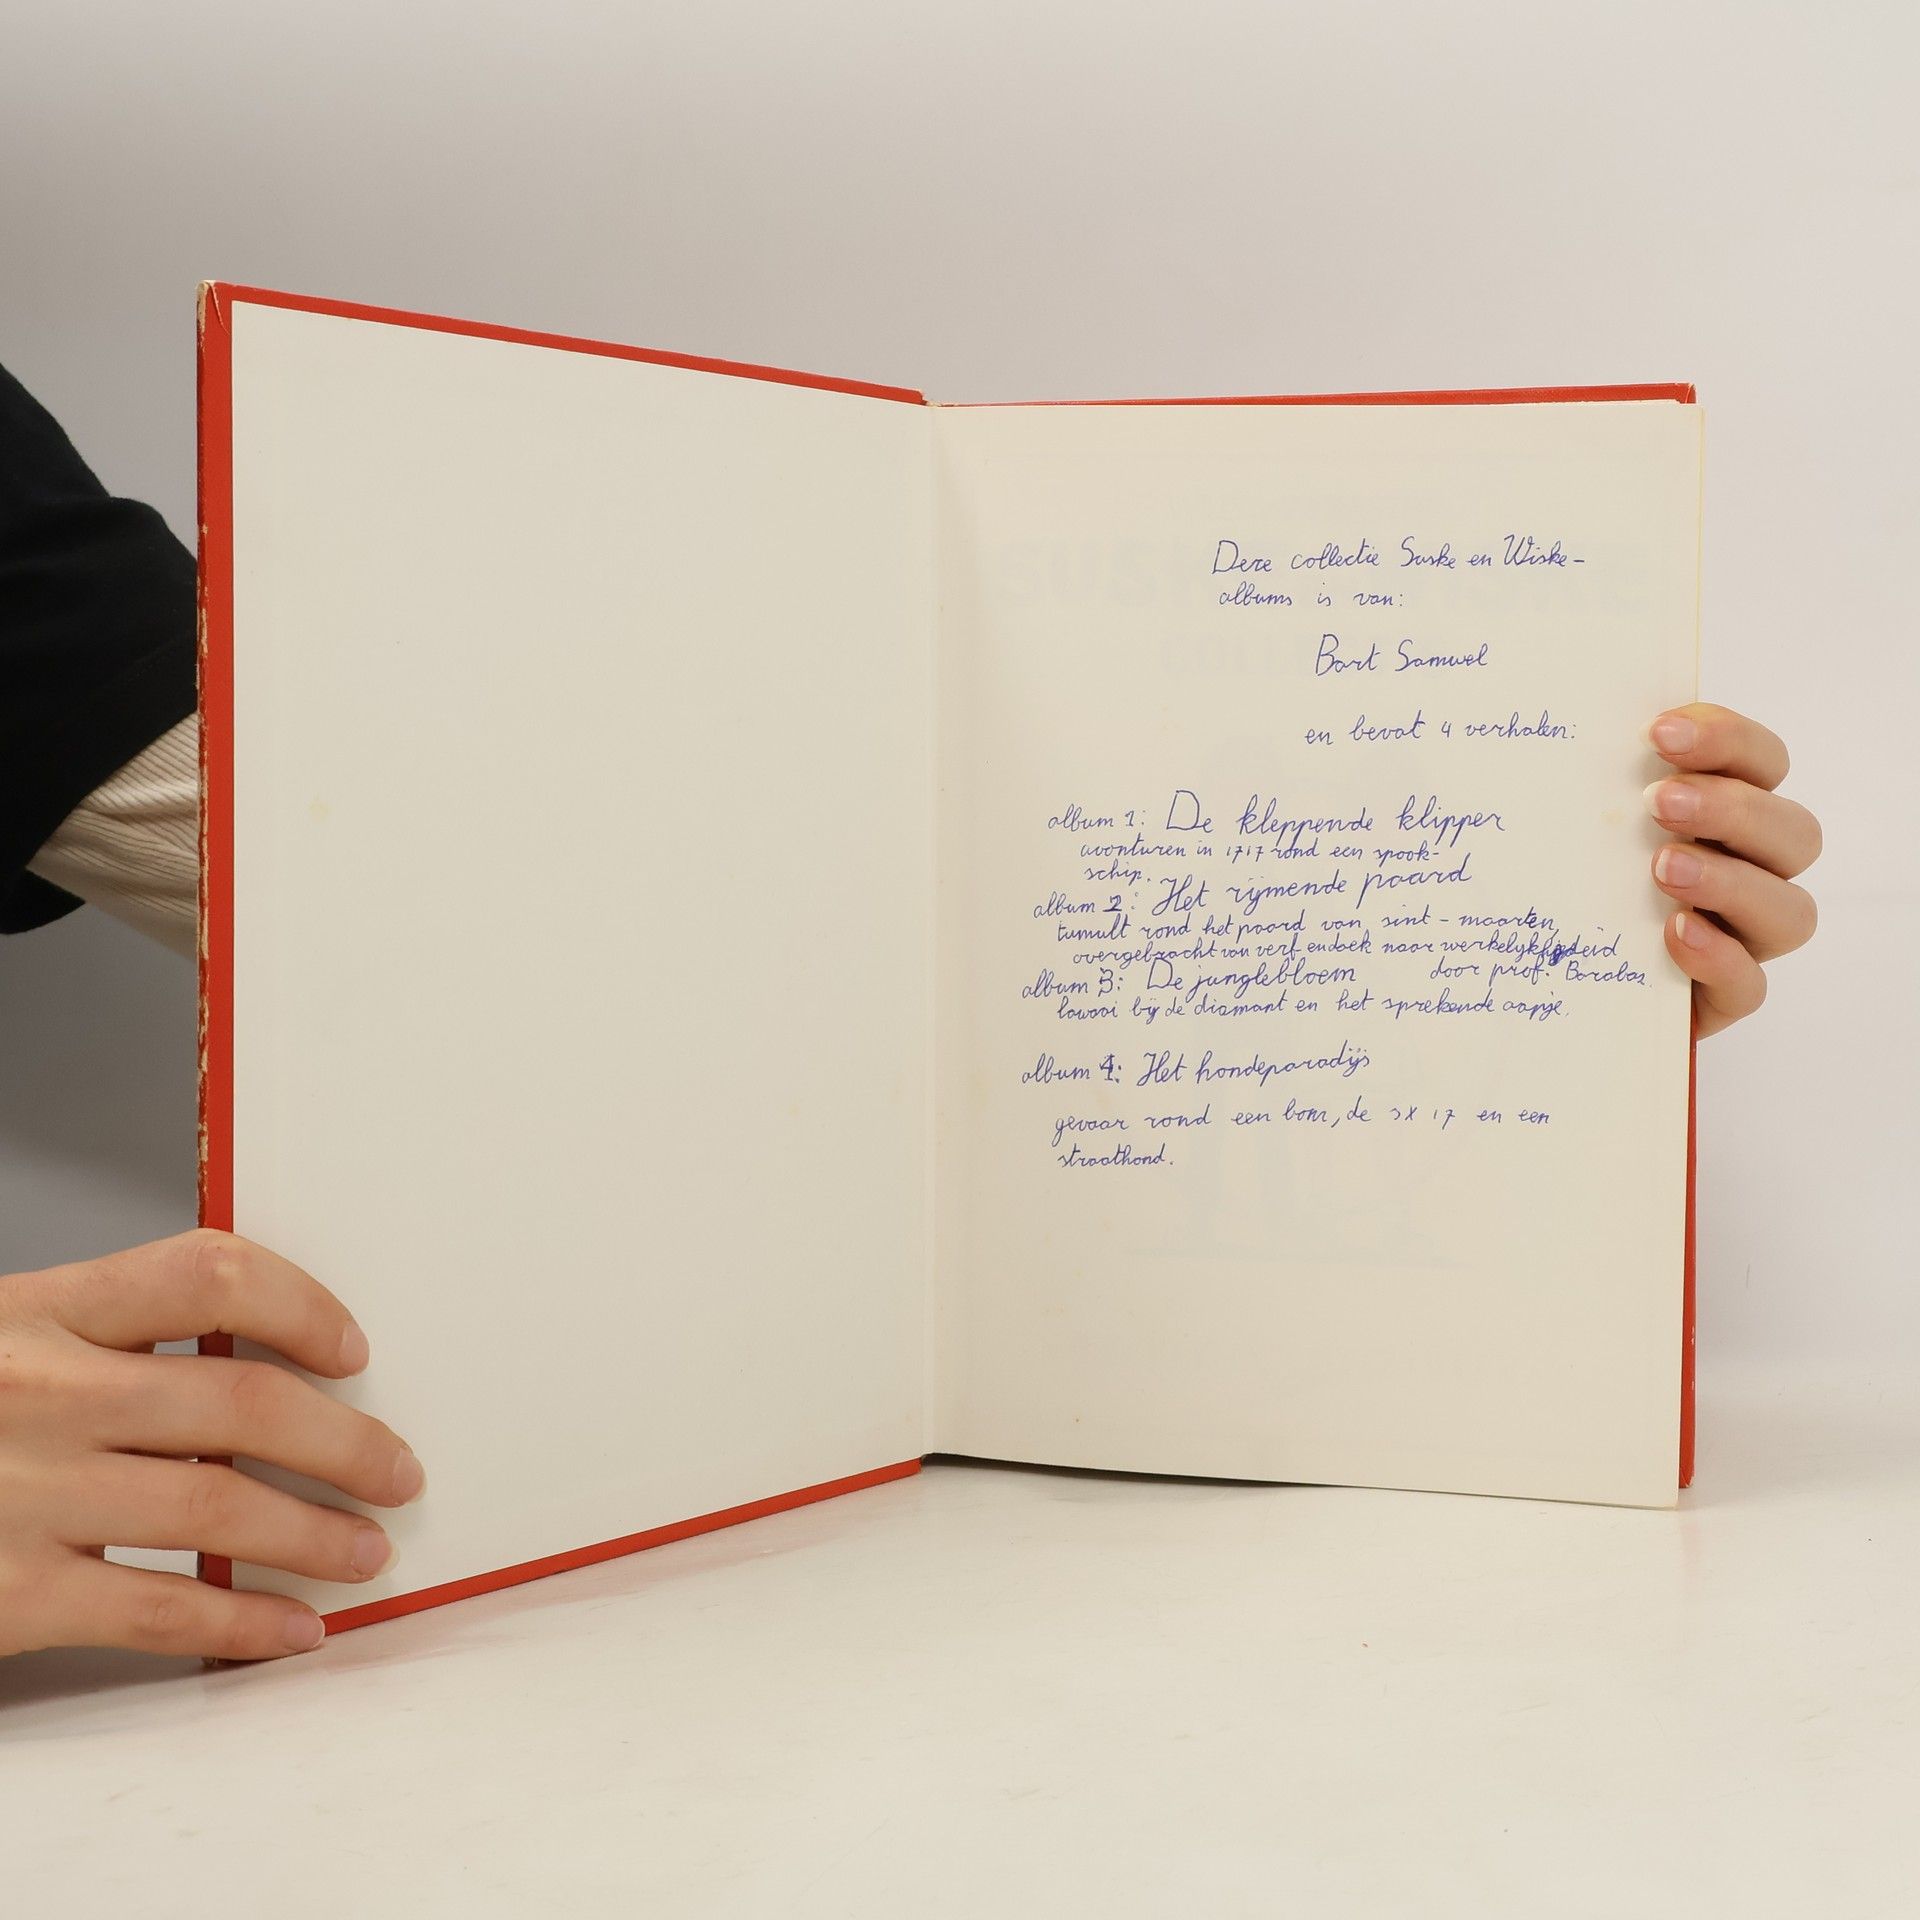 Deze collectie Suske en Wiske-
albums is van:
Bart Samwel
en bevat 4 verhalen:
album 1: De kleppende klipper
avonturen in 1717 rond een spook-
schip.
album 2: Het rijmende paard
tumult rond het paard van sint-maarten,
overgebracht van verf en doek naar werkelijkheid
door prof. Barabas.
album 3: De junglebloem
lawaai bij de diamant en het sprekende aapje.
album 4: Het hondeparadijs
gevaar rond een bom, de 3 X 17 en een
straathond.